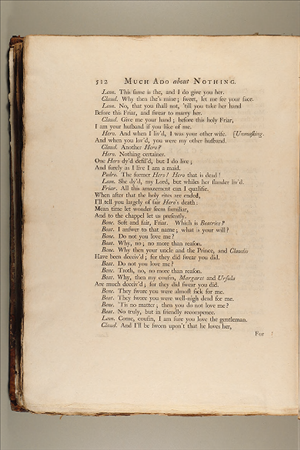 512 MUCH ADO about NOTHING.
Leon. This same is she, and I do give you her.
Claud. Why then she's mine; sweet, let me see your face.
Leon. No, that you shall not, 'till you take her hand
Before this Friar, and swear to marry her.
Claud. Give me your hand; before this holy Friar,
I am your husband if you like of me.
Hero. And when I liv'd, I was your other wife. [Unmasking.
And when you lov'd, you were my other husband.
Claud. Another Hero?
Hero. Nothing certainer.
One Hero dy'd defil'd, but I do live;
And surely as I live I am a maid.
Pedro. The former Hero! Hero that is dead!
Leon. She dy'd, my Lord, but whiles her slander liv'd.
Friar. All this amazement can I qualifie.
When after that the holy rites are ended,
I'll tell you largely of fair Hero's death:
Mean time let wonder seem familiar,
And to the chappel let us presently.
Bene. Soft and fair, Friar. Which is Beatrice?
Beat. I answer to that name; what is your will?
Bene. Do not you love me?
Beat. Why, no; no more than reason.
Bene. Why then your uncle and the Prince, and Claudio
Have been deceiv'd; for they did swear you did.
Beat. Do not you love me?
Bene. Troth, no, no more than reason.
Beat. Why, then my cousin, Margaret and Ursula
Are much deceiv'd; for they did swear you did.
Bene. They swore you were almost sick for me.
Beat. They swore you were well-nigh dead for me.
Bene. 'Tis no matter; then you do not love me?
Beat. No truly, but in friendly recompence.
Leon. Come, cousin, I am sure you love the gentleman.
Claud. And I'll be sworn upon't that he loves her,
For